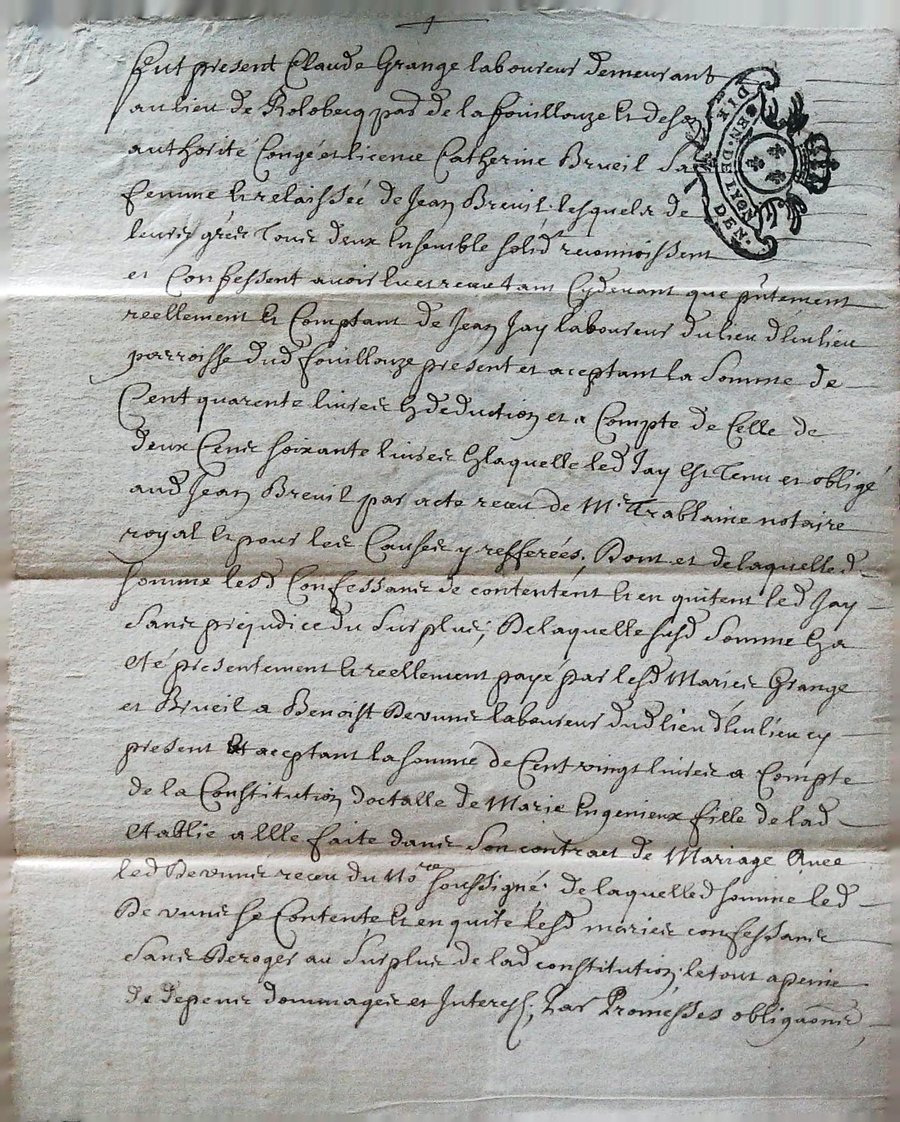 Fut present Claude Grange laboureur demeurant
au lieu de Rolobecq par de la fouillouze et de son
authorité Congé et licence Catherine Breuil sa
femme et relaissée de Jean Breuil lesquels de
leurs grés Tous deux Ensemble solid reconnoissent
et Confessent avoir heu et receu tant Cydevant que pntement
reellement et Comptant de Jean Jay laboureur du lieu
parroisse dud fouillouze present et aceptant la Somme de
Cent quarente livres En deduction et a Compte de Celle de
deux Cens soixante livres En laquelle led Jay Est Tenu et obligé
aud Jean Breuil par acte receu de Me Trablaine notaire
royal et pour les Causes y refferées, Dont et de laquelle d
somme lesd Confessans se contentent et en quitent led Jay
Sans prejudice du Surplus; De laquelle susd Somme En a
eté presentement et reellement payé par lesd Mariés Grange
et Breuil a Benoist Devunes laboureur dud lieu cy
present Et aceptant la somme de Cent vingt livres a Compte
de la Constitution doctalle de Marie Engenieux fille de lad
Etablie a Elle faite dans Son contract de Mariage Avec
led Devunes receu du Nore soussigné, de laquelle d somme led
Devunes se Contente et en quite lesd mariés confessans
Sans Deroger au Surplus de lad constitution, le tout a peine
de depens dommages et Interest; Par Promesses obligaons
GEN. DE LYON
DEN.